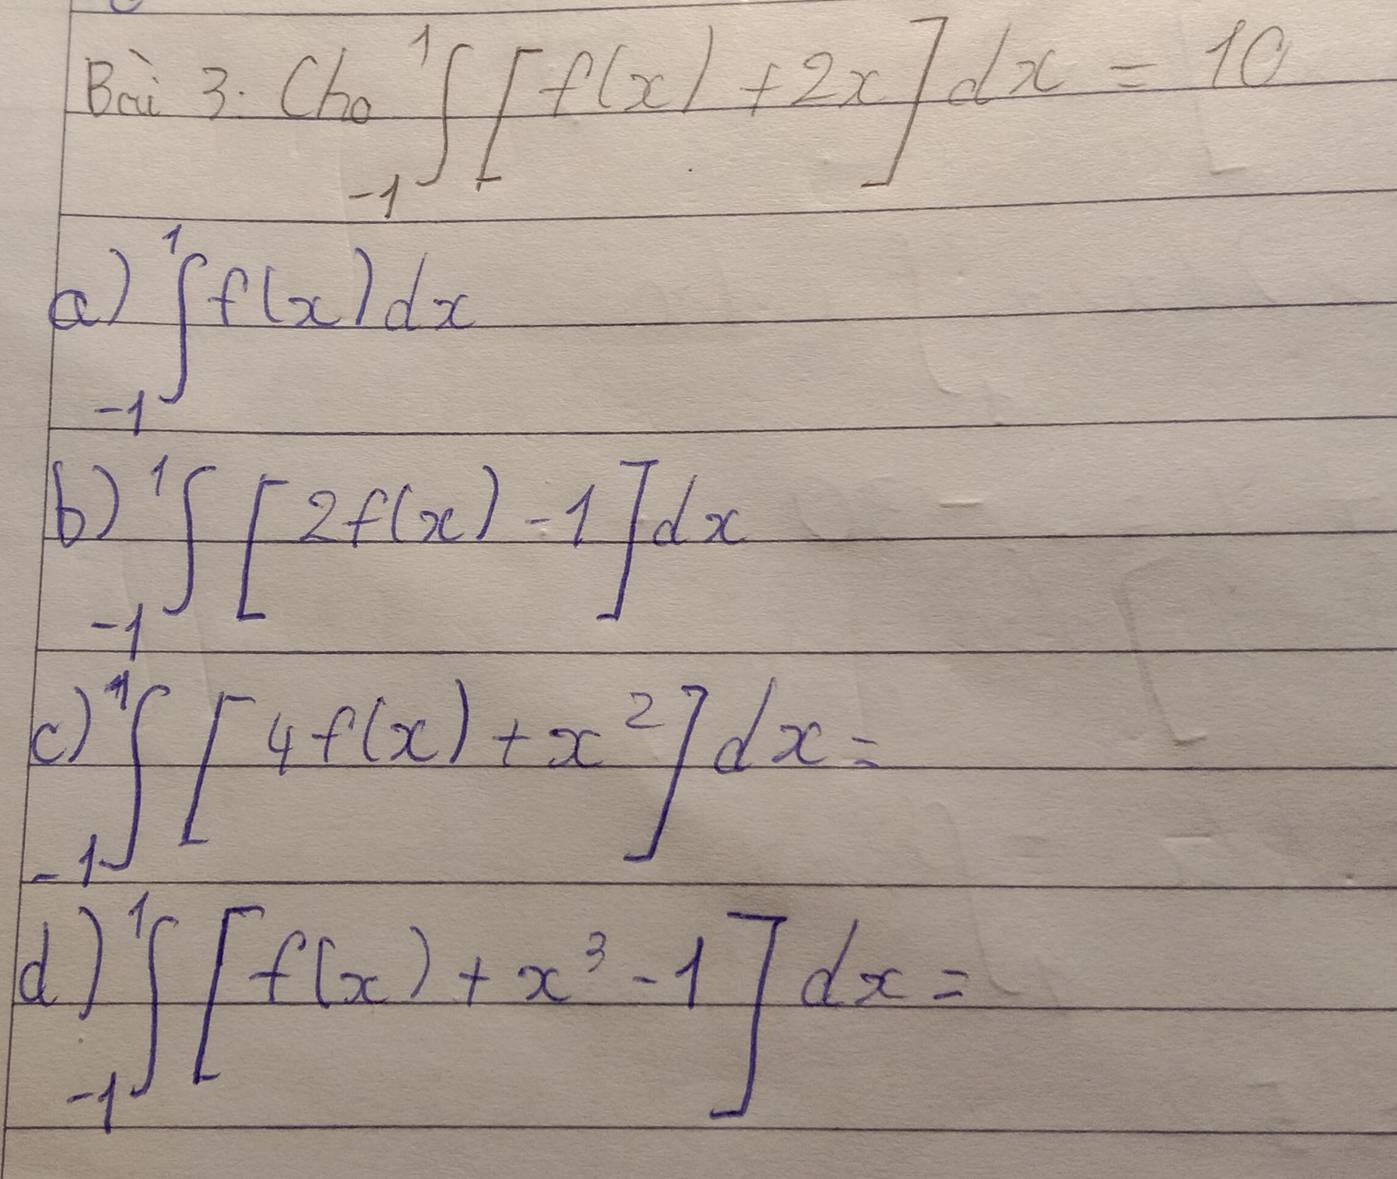 Bài 3. Cho ∫₋₁¹ [f(x) + 2x] dx = 10
a) ∫₋₁¹ f(x) dx
b) ∫₋₁¹ [2f(x) - 1] dx
c) ∫₋₁¹ [4f(x) + x²] dx =
d) ∫₋₁¹ [f(x) + x³ - 1] dx =